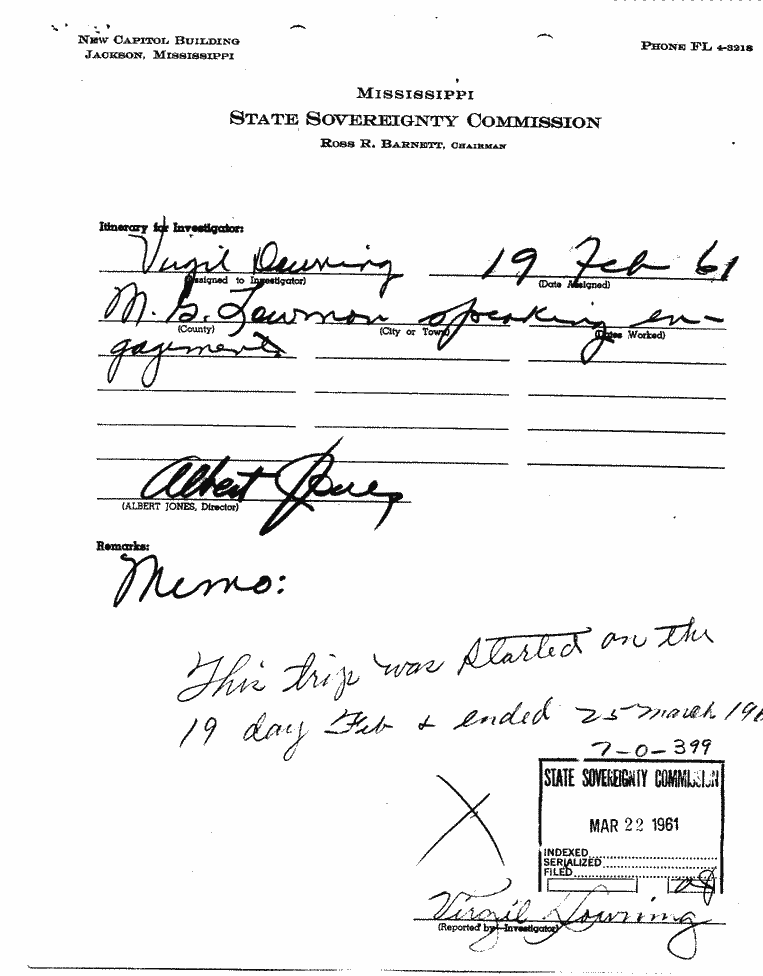 NEW CAPITOL BUILDING
JACKSON, MISSISSIPPI
PHONE FL 4-3218
MISSISSIPPI
STATE SOVEREIGNTY COMMISSION
ROSS R. BARNETT, CHAIRMAN
Itinerary for Investigator:
Virgil Downing 19 Feb 61
(Assigned to Investigator) (Date Assigned)
M. G. Lowman speaking en-
(County) (City or Town) (Dates Worked)
gagements
Albert Jones
(ALBERT JONES, Director)
Remarks:
Memo:
This trip was started on the
19 day Feb & ended 25 march 196
7-0-399
STATE SOVEREIGNTY COMMISSION
MAR 22 1961
INDEXED
SERIALIZED
FILED
Virgil Downing
(Reported by Investigator)